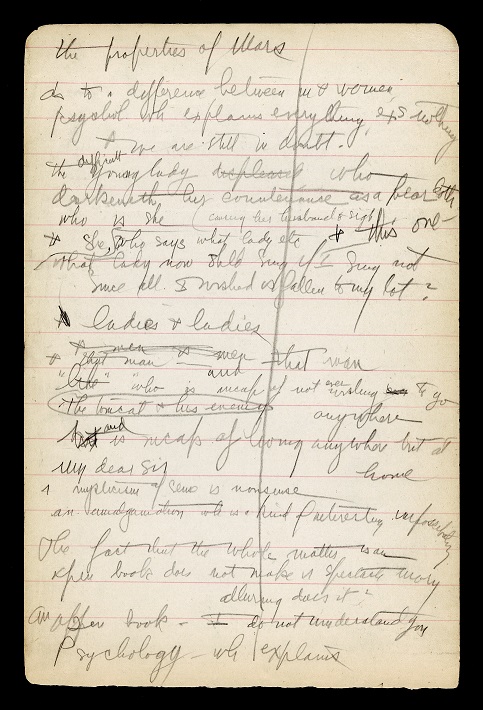 the properties of Mars
as to a difference between m & women
psychol wh explains everything, exs nothing
& we are still in doubt.
the difficult young lady who
darkeneth her countenance as a bear doth
who is she (causing her husband to sigh
& she, who says what lady etc & this one
what lady now Sing if I Sing not
since all I wished is fallen to my lot?
ladies & ladies
& men & men
& that man and that man
"Who" who is incap of not even wishing to go
the tomcat & his enemy anywhere
and is incap of going anywhere but at
my dear Sir home
mysticism of sexes is nonsense
an amalgamation wh is a kind of interesting impossibility
The fact that the whole matter is an
open book does not make it Spectacle more
alluring does it?
an open book - I do not understand you
Psychology - wh explains